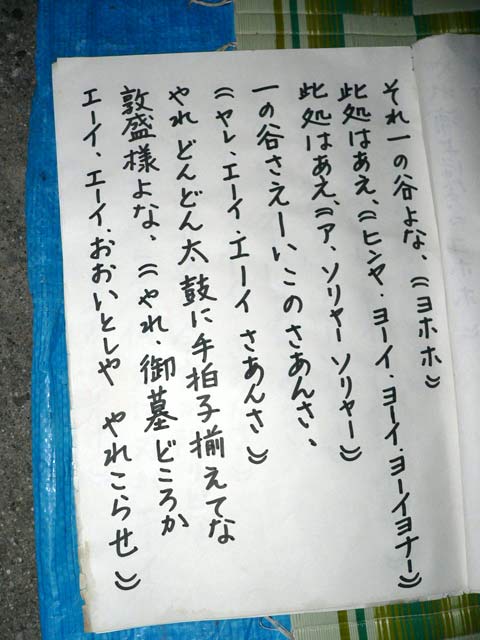 それ一の谷よな、《ヨホホ》
此処はあえ、《ヒンヤ・ヨーイ・ヨーイ・ヨーイヨナー》
此処はあえ、《ア、ソリャーソリャー》
一の谷さえーいこのさあんさ、
《ヤレ・エーイ・エーイ さあんさ》
やれ どんどん太鼓に手拍子揃えてな
敦盛様よな、《やれ・御墓どころか
エーイ・エーイ・おおいとしや やれこらせ》